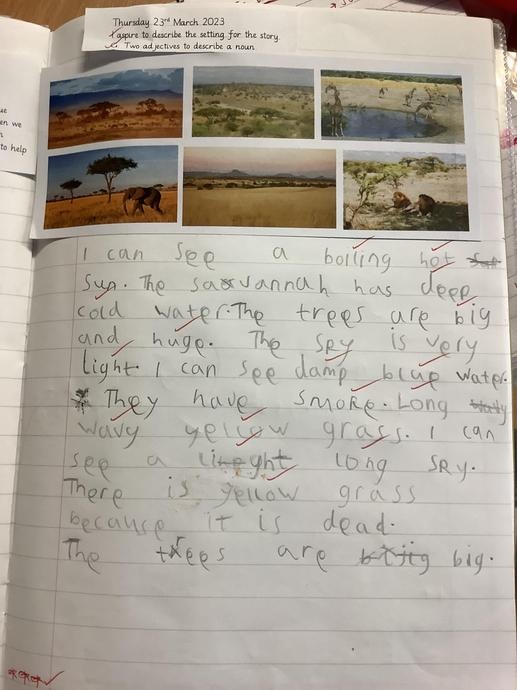 Thursday 23rd March 2023
I aspire to describe the setting for the story.
Two adjectives to describe a noun
ue
en we
n
to help
I can see a boiling hot
sun. The savannah has deep
cold water. The trees are big
and huge. The sky is very
light. I can see damp blue water.
They have smore. Long
wavy yellow grass. I can
see a light long sky.
There is yellow grass
because it is dead.
The trees are big.